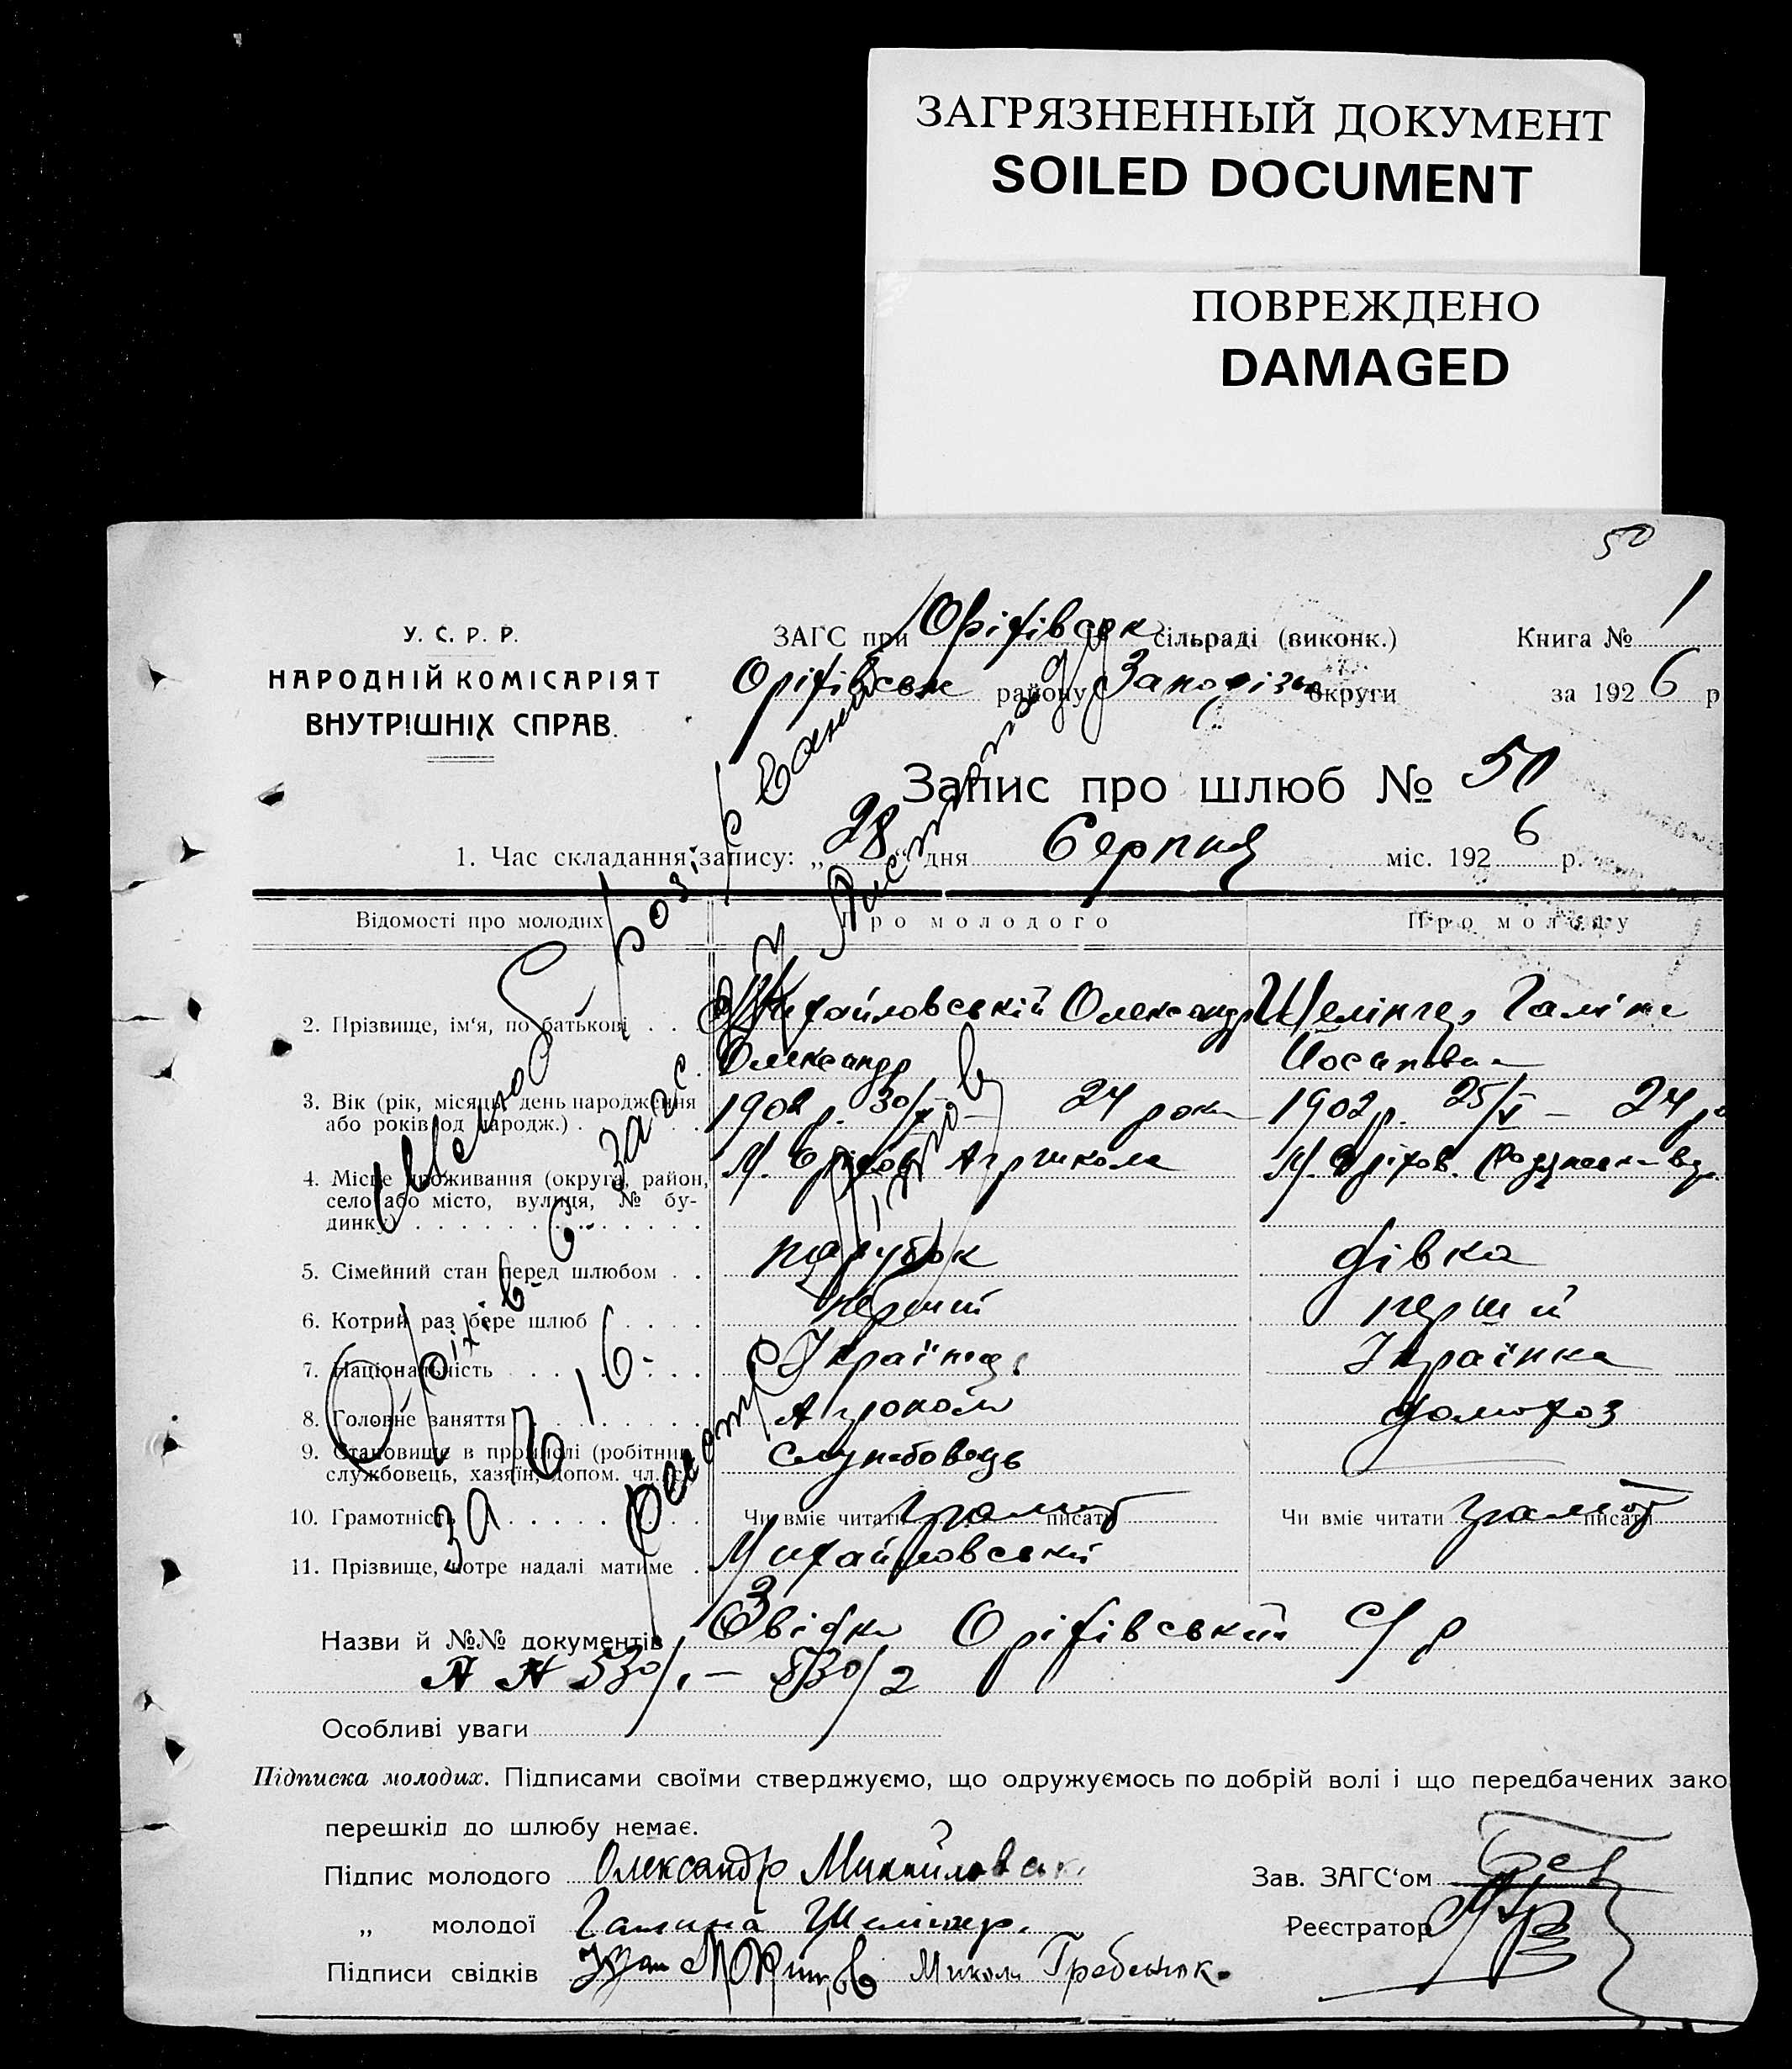 ЗАГРЯЗНЕННЫЙ ДОКУМЕНТ
SOILED DOCUMENT
ПОВРЕЖДЕНО
DAMAGED
50
У. С. Р. Р.
НАРОДНІЙ КОМІСАРІЯТ
ВНУТРІШНІХ СПРАВ.
ЗАГС при Оріхівськ сільраді (виконк.)
Книга № 1
Оріхівськ району Запоріз округи
за 1926 р
Запис про шлюб № 50
1. Час складання запису: „28" дня Серпня міс. 1926 р.
Відомості про молодих
Про молодого
Про молоду
2. Прізвище, ім‘я, по батькові
Михайловській Олександр
Олександр
Шелінгер Галіна
Йосиповна
3. Вік (рік, місяць, день народження
або років од народж.)
1902 р. 30/ — 24 роки
1902 р. 25/V — 24 ро
4. Місце проживання (округа, район,
село або місто, вулиця, № бу-
динку)
М. Оріхов Агршкола
М. Оріхов.
5. Сімейний стан перед шлюбом
парубок
дівка
6. Котрий раз бере шлюб
перший
перший
7. Національність
Українець
Українка
8. Головне заняття
Агроном
домогоз
9. Становище в промислі (робітник,
службовець, хазяїн, допом. чл. с.
Службовець
10. Грамотність
Чи вміє читати грамот писати
Чи вміє читати грамот писати
11. Прізвище, котре надалі матиме
Михайловській
Назви й №№ документів Звідки Оріхівський С/р
№ № 530/1 — 530/2
Особливі уваги
Підписка молодих. Підписами своїми стверджуємо, що одружуємось по добрій волі і що передбачених зако
перешкід до шлюбу немає.
Підпис молодого Олександр Михайловськ
Зав. ЗАГС‘ом
„ молодої Галина Шелінгер.
Реєстратор
Підписи свідків Микола Гребенюк.
Шлюб розірвано
Оріхів. ЗАГС
за № 16